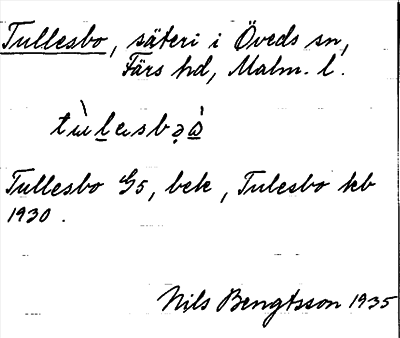 Tullesbo, säteri i Öveds sn,
Färs hd, Malm. l.
Tullesbo G5, bek, Tulesbo kb
1930.
Nils Bengtsson 1935